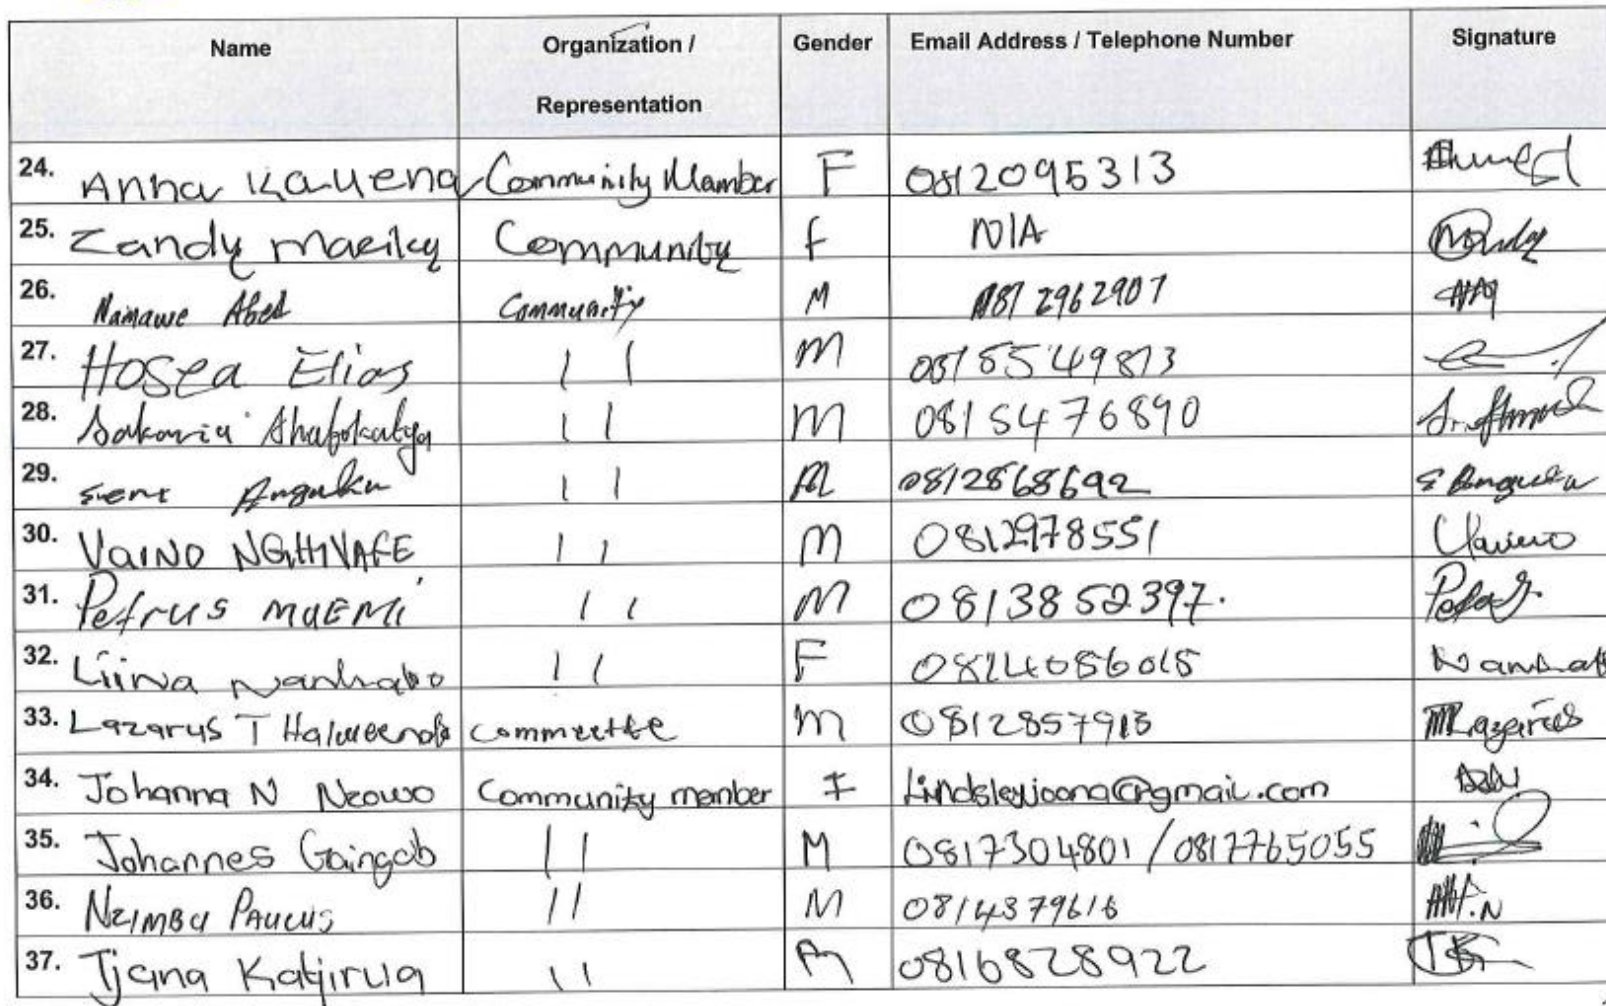 Name Organization / Gender Email Address / Telephone Number Signature
Representation
24. Anna Kauena Community Member F 0812095313
25. Zandy Maeiky Community f N/A
26. Namawe Abed Community M 0812962907
27. Hosea Elias 11 M 0815549813
28. Sakaria Shapokatya 11 M 0815476890
29. Anguku 11 M 0812868692 S Angula
30. VaiNO NGHIVAFE 11 M 0812978551 Vaino
31. Petrus MUEMI 11 M 0813852397.
32. Liina Nanhabo 11 F 0814086018
33. Lazarus T committee M 0812857913 Lazarus
34. Johanna N Neowo Community member F Lindsleyjoona@gmail.com
35. Johannes Gaingob 11 M 0817304801 / 0817765055
36. NZIMBU PAULUS 11 M 0814379616
37. Tjana Katjirua 11 M 0816828922